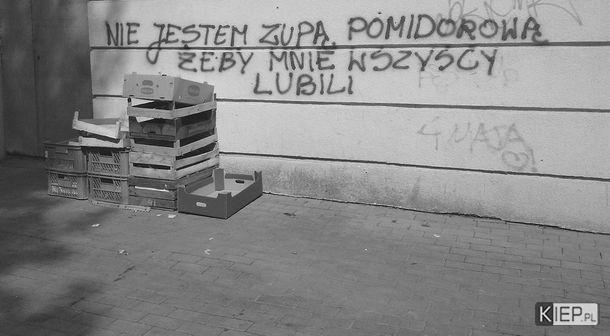 NIE JESTEM ZUPĄ POMIDOROWĄ
ŻEBY MNIE WSZYSCY
LUBILI
4 MAJA
KIEP.PL